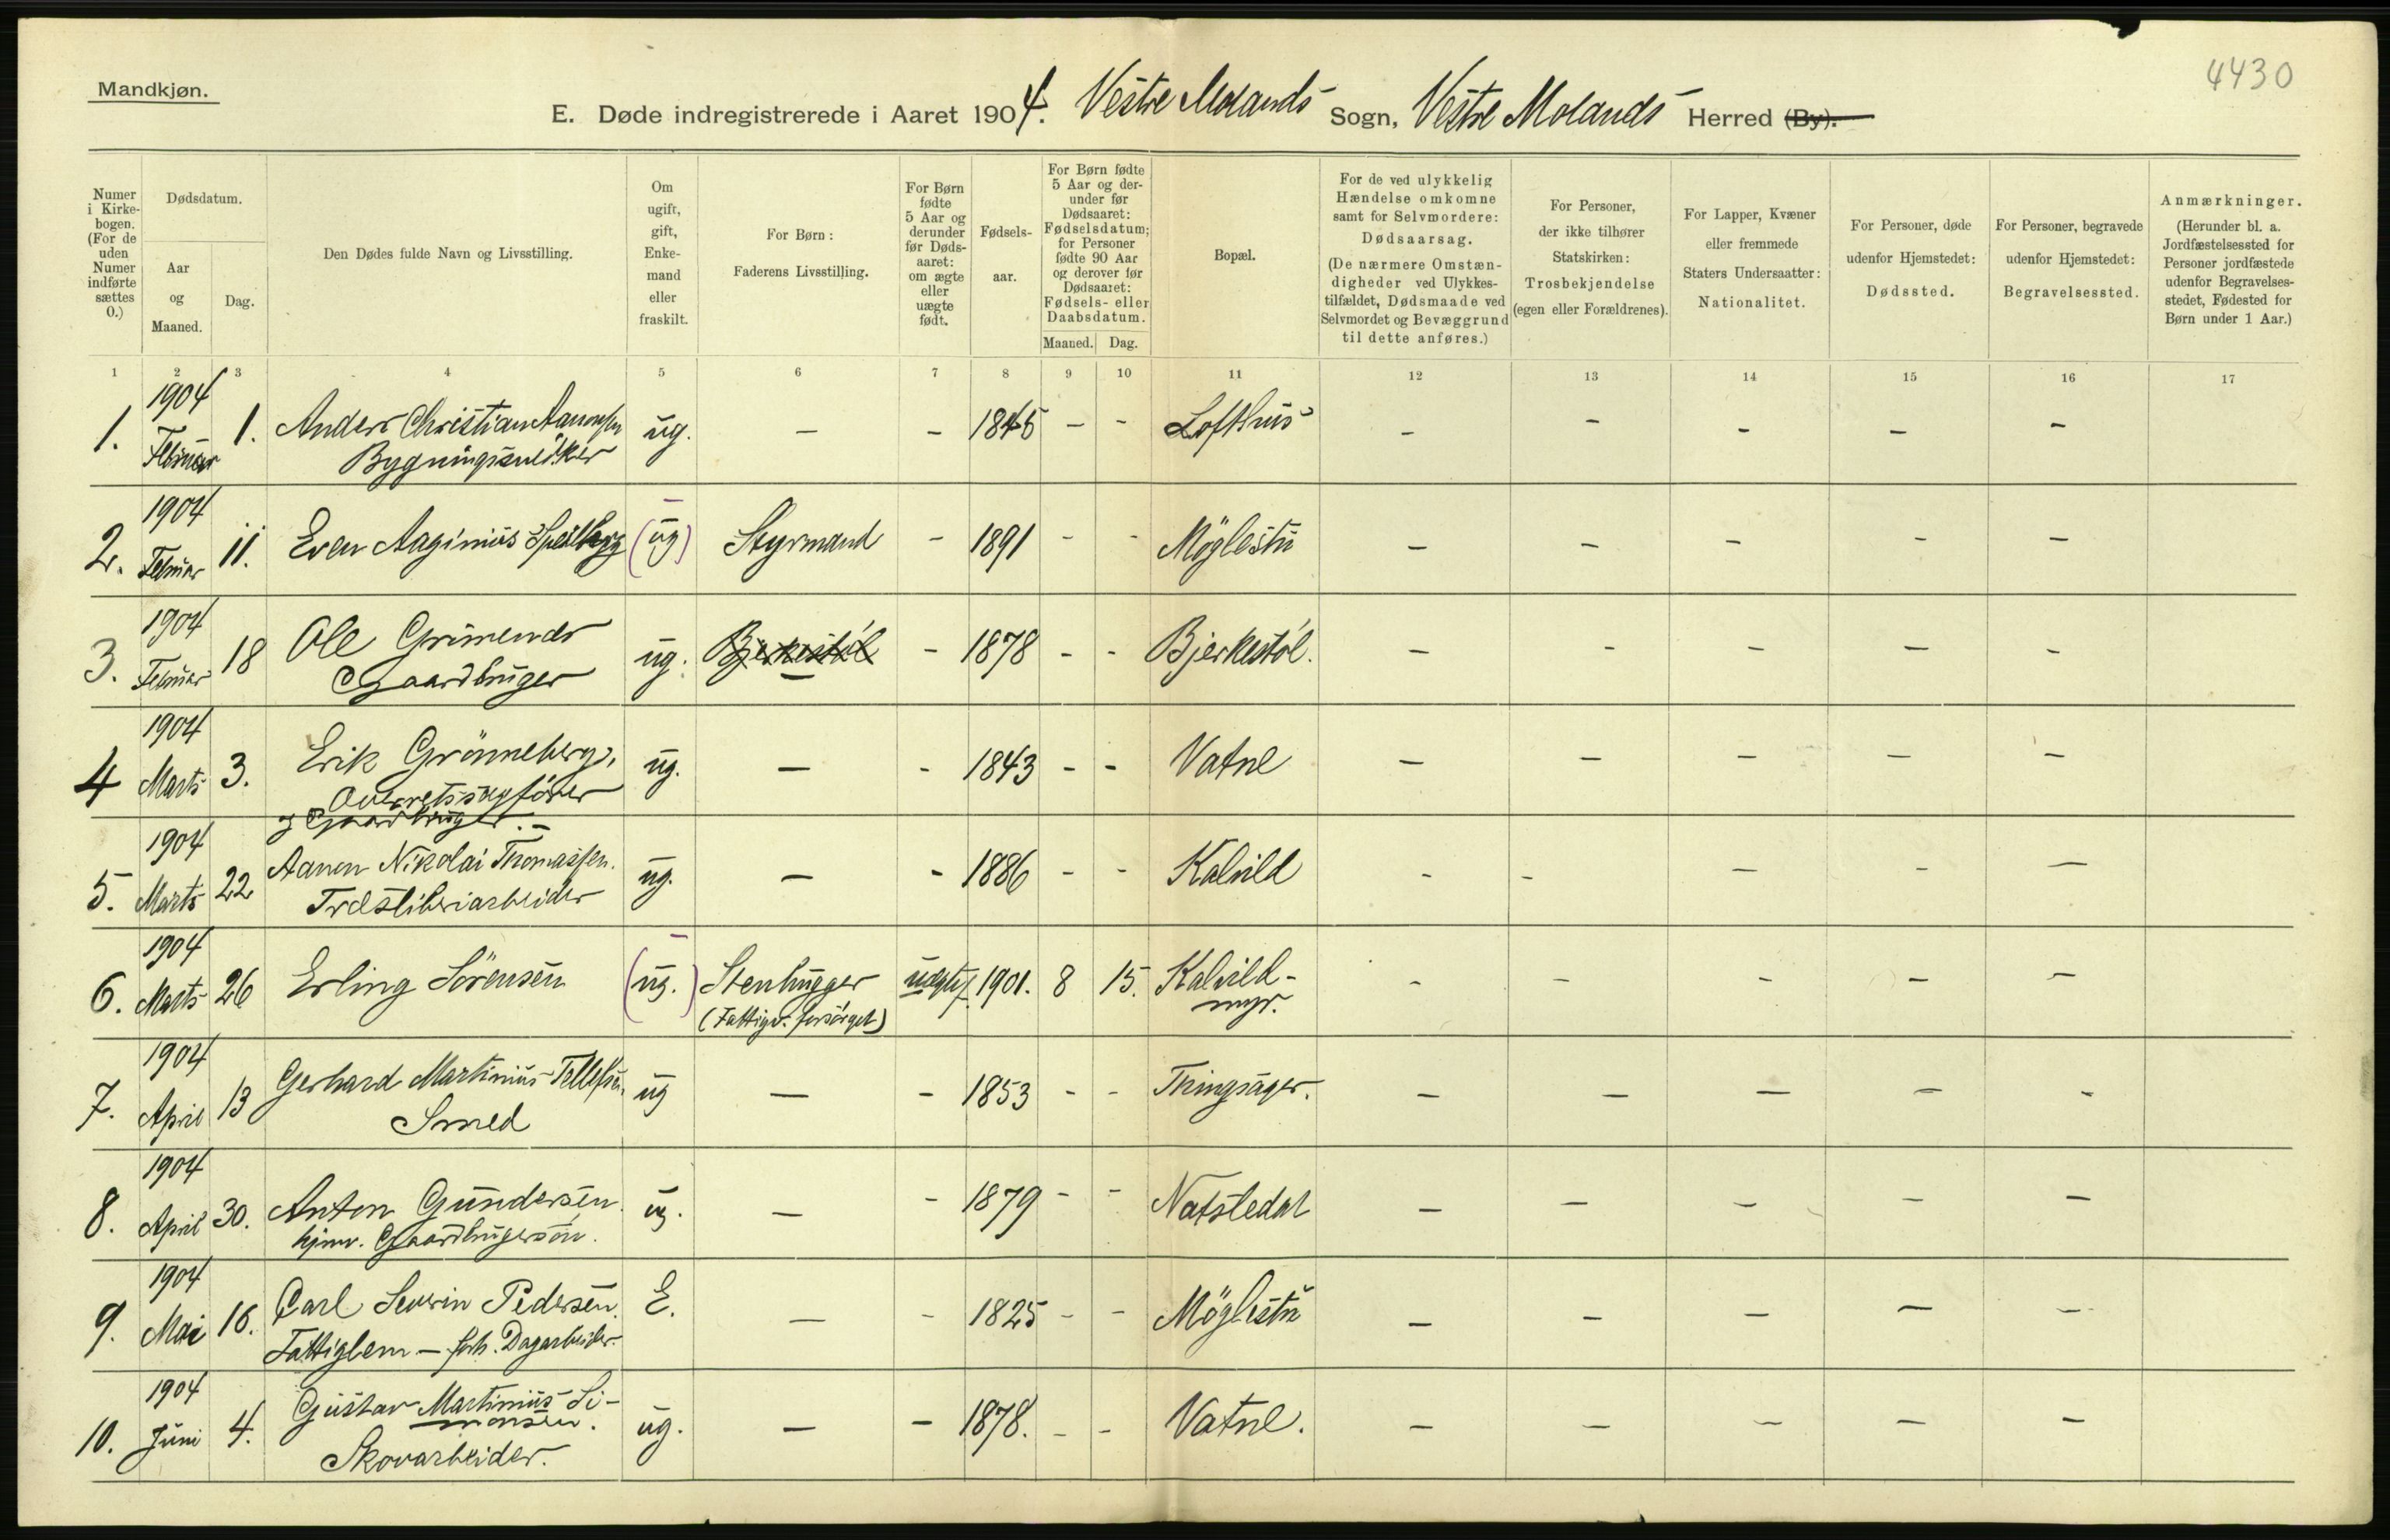 4430
Mandkjøn.
E. Døde indregistrerede i Aaret 1904. Vestre Molands Sogn, Vestre Molands Herred (By).
Numer i Kirkebogen. (For de uden Numer indførte sættes 0.)
Dødsdatum.
Aar og Maaned.
Dag.
Den Dødes fulde Navn og Livsstilling.
Om ugift, gift, Enkemand eller fraskilt.
For Børn: Faderens Livsstilling.
For Børn fødte 5 Aar og derunder før Dødsaaret: om ægte eller uægte født.
Fødselsaar.
For Børn fødte 5 Aar og derunder før Dødsaaret: Fødselsdatum; for Personer fødte 90 Aar og derover før Dødsaaret: Fødsels- eller Daabsdatum.
Maaned. Dag.
Bopæl.
For de ved ulykkelig Hændelse omkomne samt for Selvmordere: Dødsaarsag. (De nærmere Omstændigheder ved Ulykkestilfældet, Dødsmaade ved Selvmordet og Bevæggrund til dette anføres.)
For Personer, der ikke tilhører Statskirken: Trosbekjendelse (egen eller Forældrenes).
For Lapper, Kvæner eller fremmede Staters Undersaatter: Nationalitet.
For Personer, døde udenfor Hjemstedet: Dødssted.
For Personer, begravede udenfor Hjemstedet: Begravelsessted.
Anmærkninger. (Herunder bl. a. Jordfæstelsessted for Personer jordfæstede udenfor Begravelsesstedet, Fødested for Børn under 1 Aar.)
1 2 3 4 5 6 7 8 9 10 11 12 13 14 15 16 17
1. 1904 Februar 1. Anders Christian Aanonsen Bygningssnedker ug. — - 1845 - - Lofthus - - - - -
2. 1904 Februar 11. Even Aaginius (ug) Styrmand - 1891 - - Möglestu - - - - -
3. 1904 Februar 18 Ole Grimenes Gaardbruger ug. Bjerkestöl — - 1878 - - Bjerkestöl. - - - - -
4 1904 Marts 3. Erik Grönneberg, Overretssagförer og Gaardbruger. ug. — - 1843 - - Vatne - - - - -
5. 1904 Marts 22 Aanon Nikolai Thomassen. Træsliberiarbeider ug. — - 1886 - - Kalvild - - - - -
6. 1904 Marts 26 Erling Sörensen (ug.) Stenhugger (Fattigv. forsörget) uægte f. 1901. 8 15. Kalvildmyr. - - - - -
7. 1904 April 13 Gerhard Martinius Tellefsen. Smed ug — - 1853 - - Thingsager. - - - - -
8. 1904 April 30. Anton Gundersen. hjmv. Gaardbrugersön. ug. — - 1879 - - Natvedal - - - - -
9. 1904 Mai 16. Carl Severin Pedersen. Fattiglem — forh. Dagarbeider. E. — - 1825 - - Möglestu - - - - -
10. 1904 Juni 4. Gustav Martinius Simonsen. Skovarbeider. ug. — - 1878. - - Vatne. - - - - -